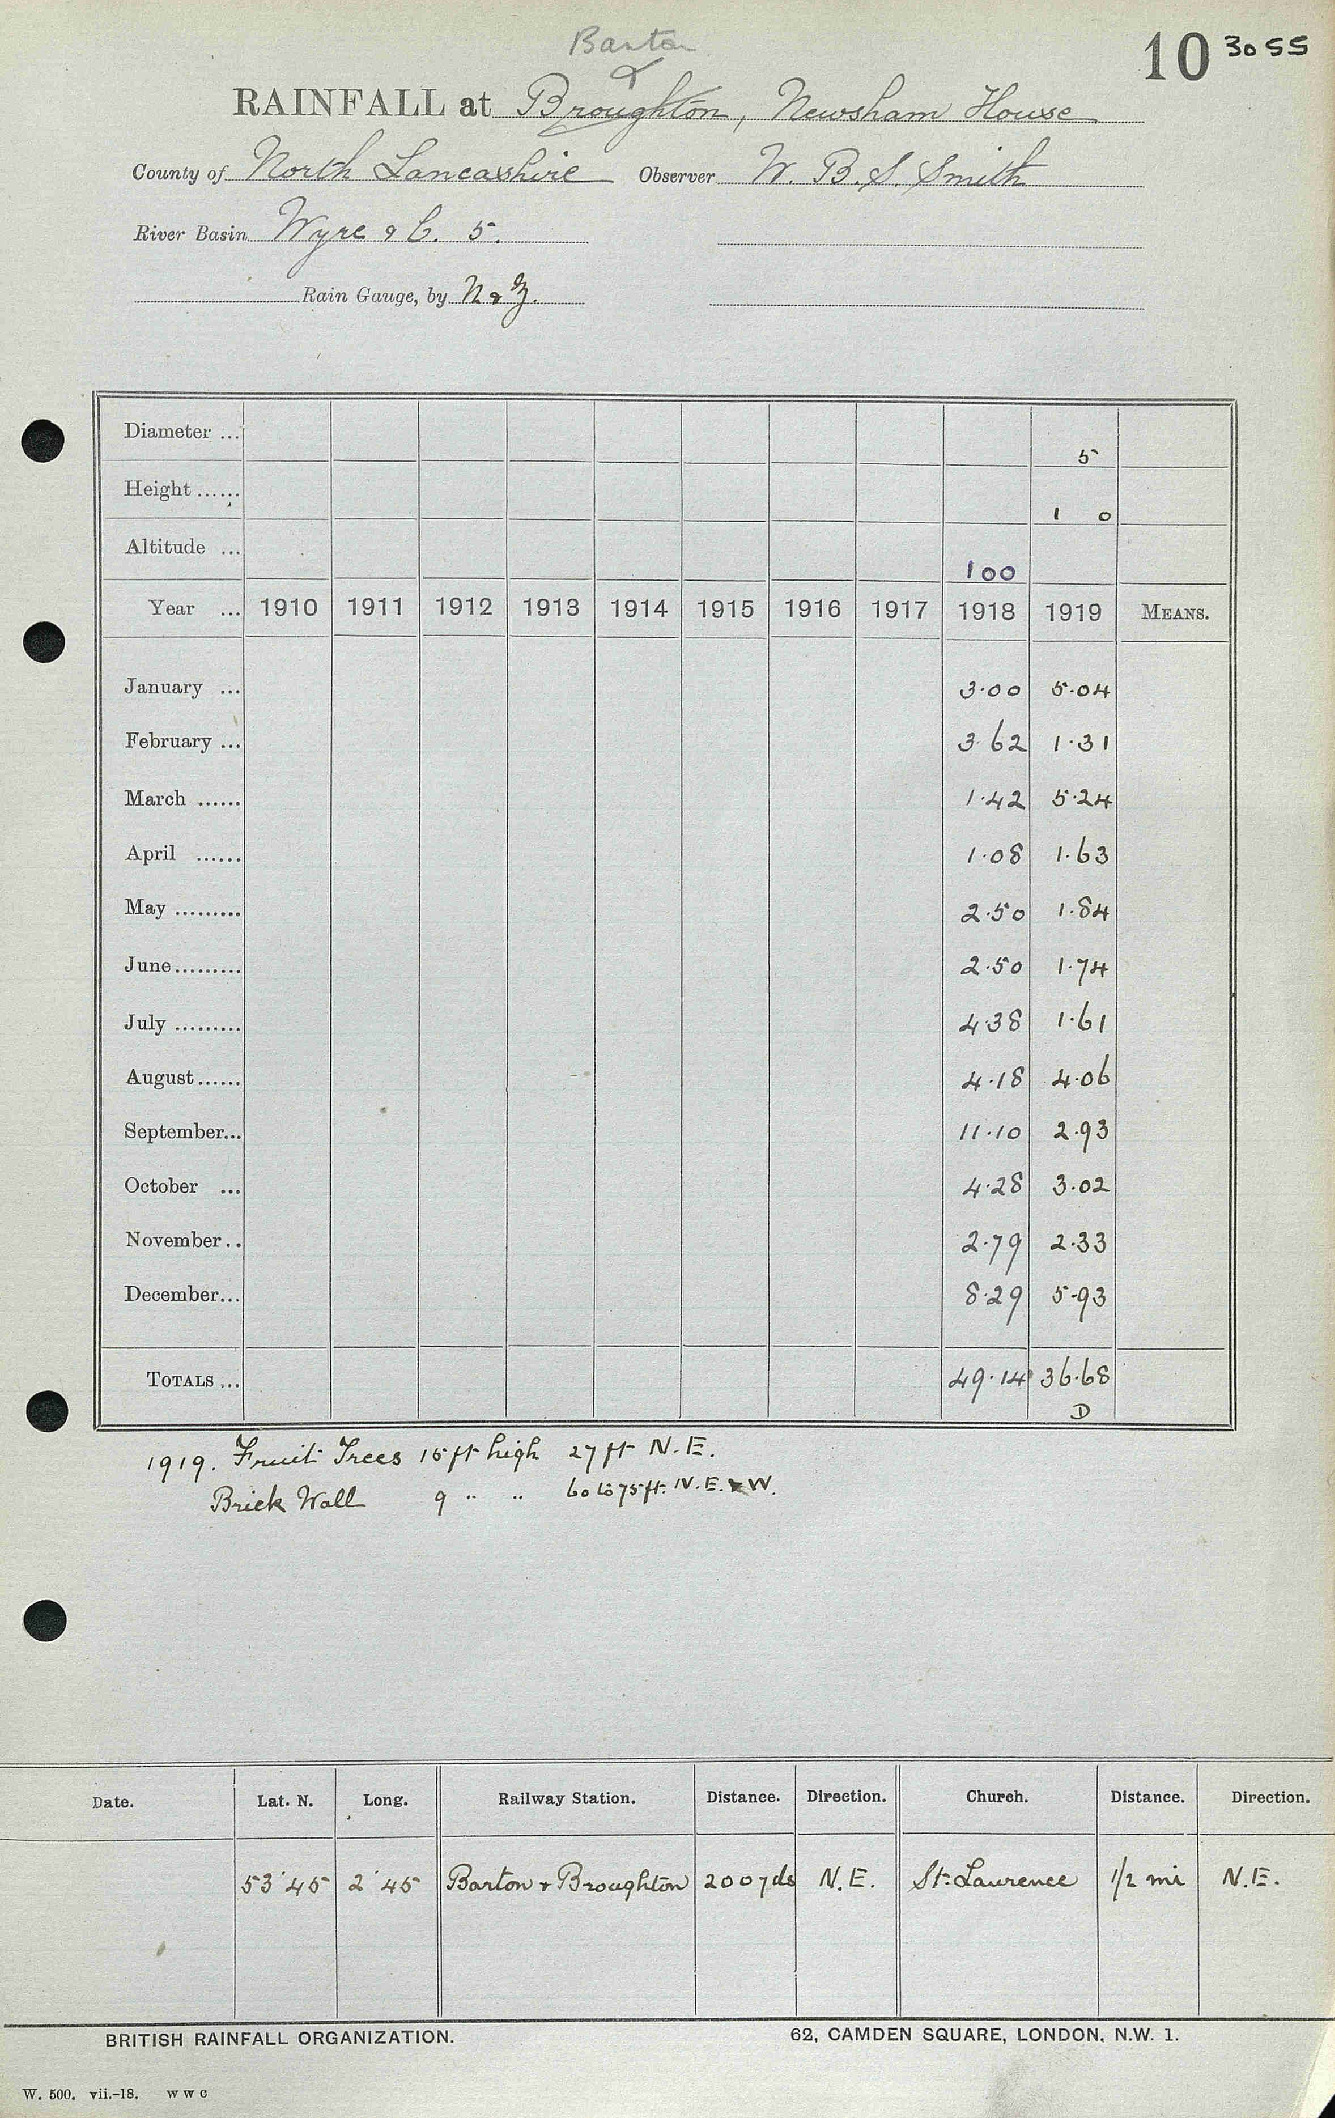 Barton &
10 3055
RAINFALL at Broughton, Newsham House
County of North Lancashire Observer W. B. S. Smith
River Basin Wyre & C. 5.
Rain Gauge, by N & Z.
Diameter ... 5
Height ...... 1 0
Altitude ... 100
Year ... 1910 1911 1912 1913 1914 1915 1916 1917 1918 1919 MEANS.
January ... 3·00 5·04
February ... 3·62 1·31
March ...... 1·42 5·24
April ...... 1·08 1·63
May ......... 2·50 1·84
June ......... 2·50 1·74
July ......... 4·38 1·61
August ...... 4·18 4·06
September... 11·10 2·93
October ... 4·28 3·02
November .. 2·79 2·33
December... 8·29 5·93
TOTALS ... 49·14 36·68
D
1919. Fruit Trees 15 ft high 27 ft N.E.
Brick Wall 9 " " 60 to 75 ft. N.E. & W.
Date. Lat. N. Long. Railway Station. Distance. Direction. Church. Distance. Direction.
53°45 2°45 Barton & Broughton 200 yds N.E. St. Laurence 1/2 mi N.E.
BRITISH RAINFALL ORGANIZATION. 62, CAMDEN SQUARE, LONDON, N.W. 1.
W. 500. vii.–18. W W C